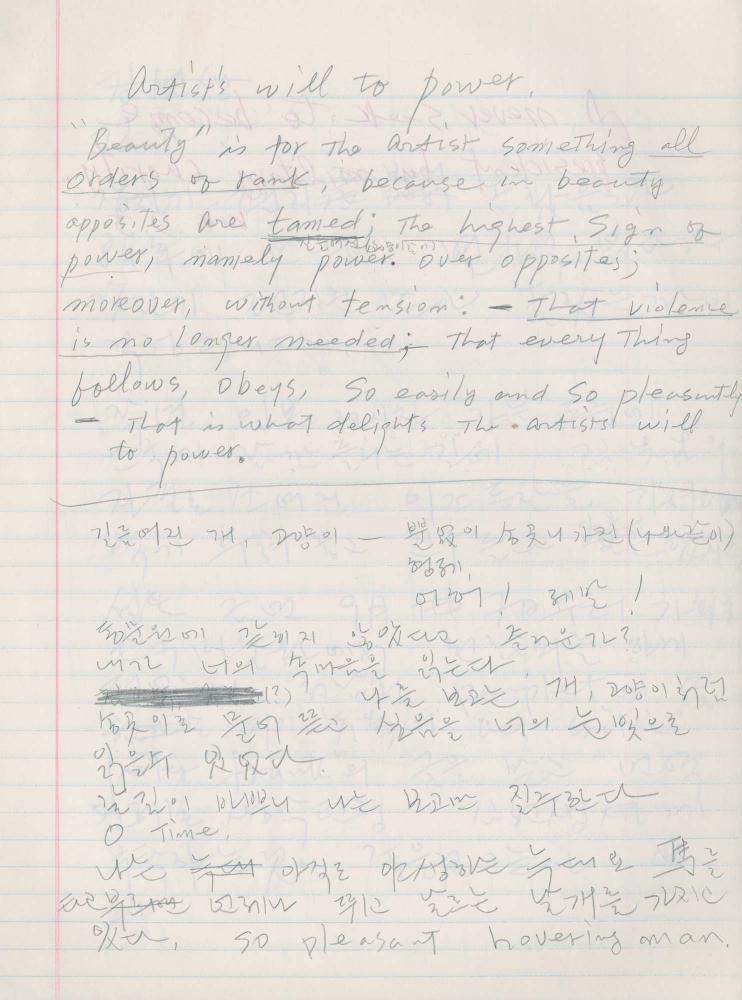 Artist's will to power.
"Beauty" is for the artist something all
orders of rank, because in beauty
opposites are tamed; The highest sign of
power, namely power. over opposites;
moreover, without tension: – That violence
is no longer needed; that every Thing
follows, obeys, so easily and so pleasantly
– That is what delights The artists will
to power.
길들여진 개, 고양이 — 뿔없이 송곳니 가진
형제,
어허! 제발!
동물원에 갇히지 않았다고 즐거운가?
내가 너의 속마음을 읽는다.
(?) 나를 보고는 개, 고양이처럼
송곳이로 물어 뜯고 싶음을 너의 눈빛으로
읽을수 있었다.
갈길이 바쁘니 나는 보고만 질주한다
O Time,
나는 아직도 야성하는 늑대요 馬를
언제나 뛰고 날으는 날개를 가지고
있다, so pleasant hovering man.